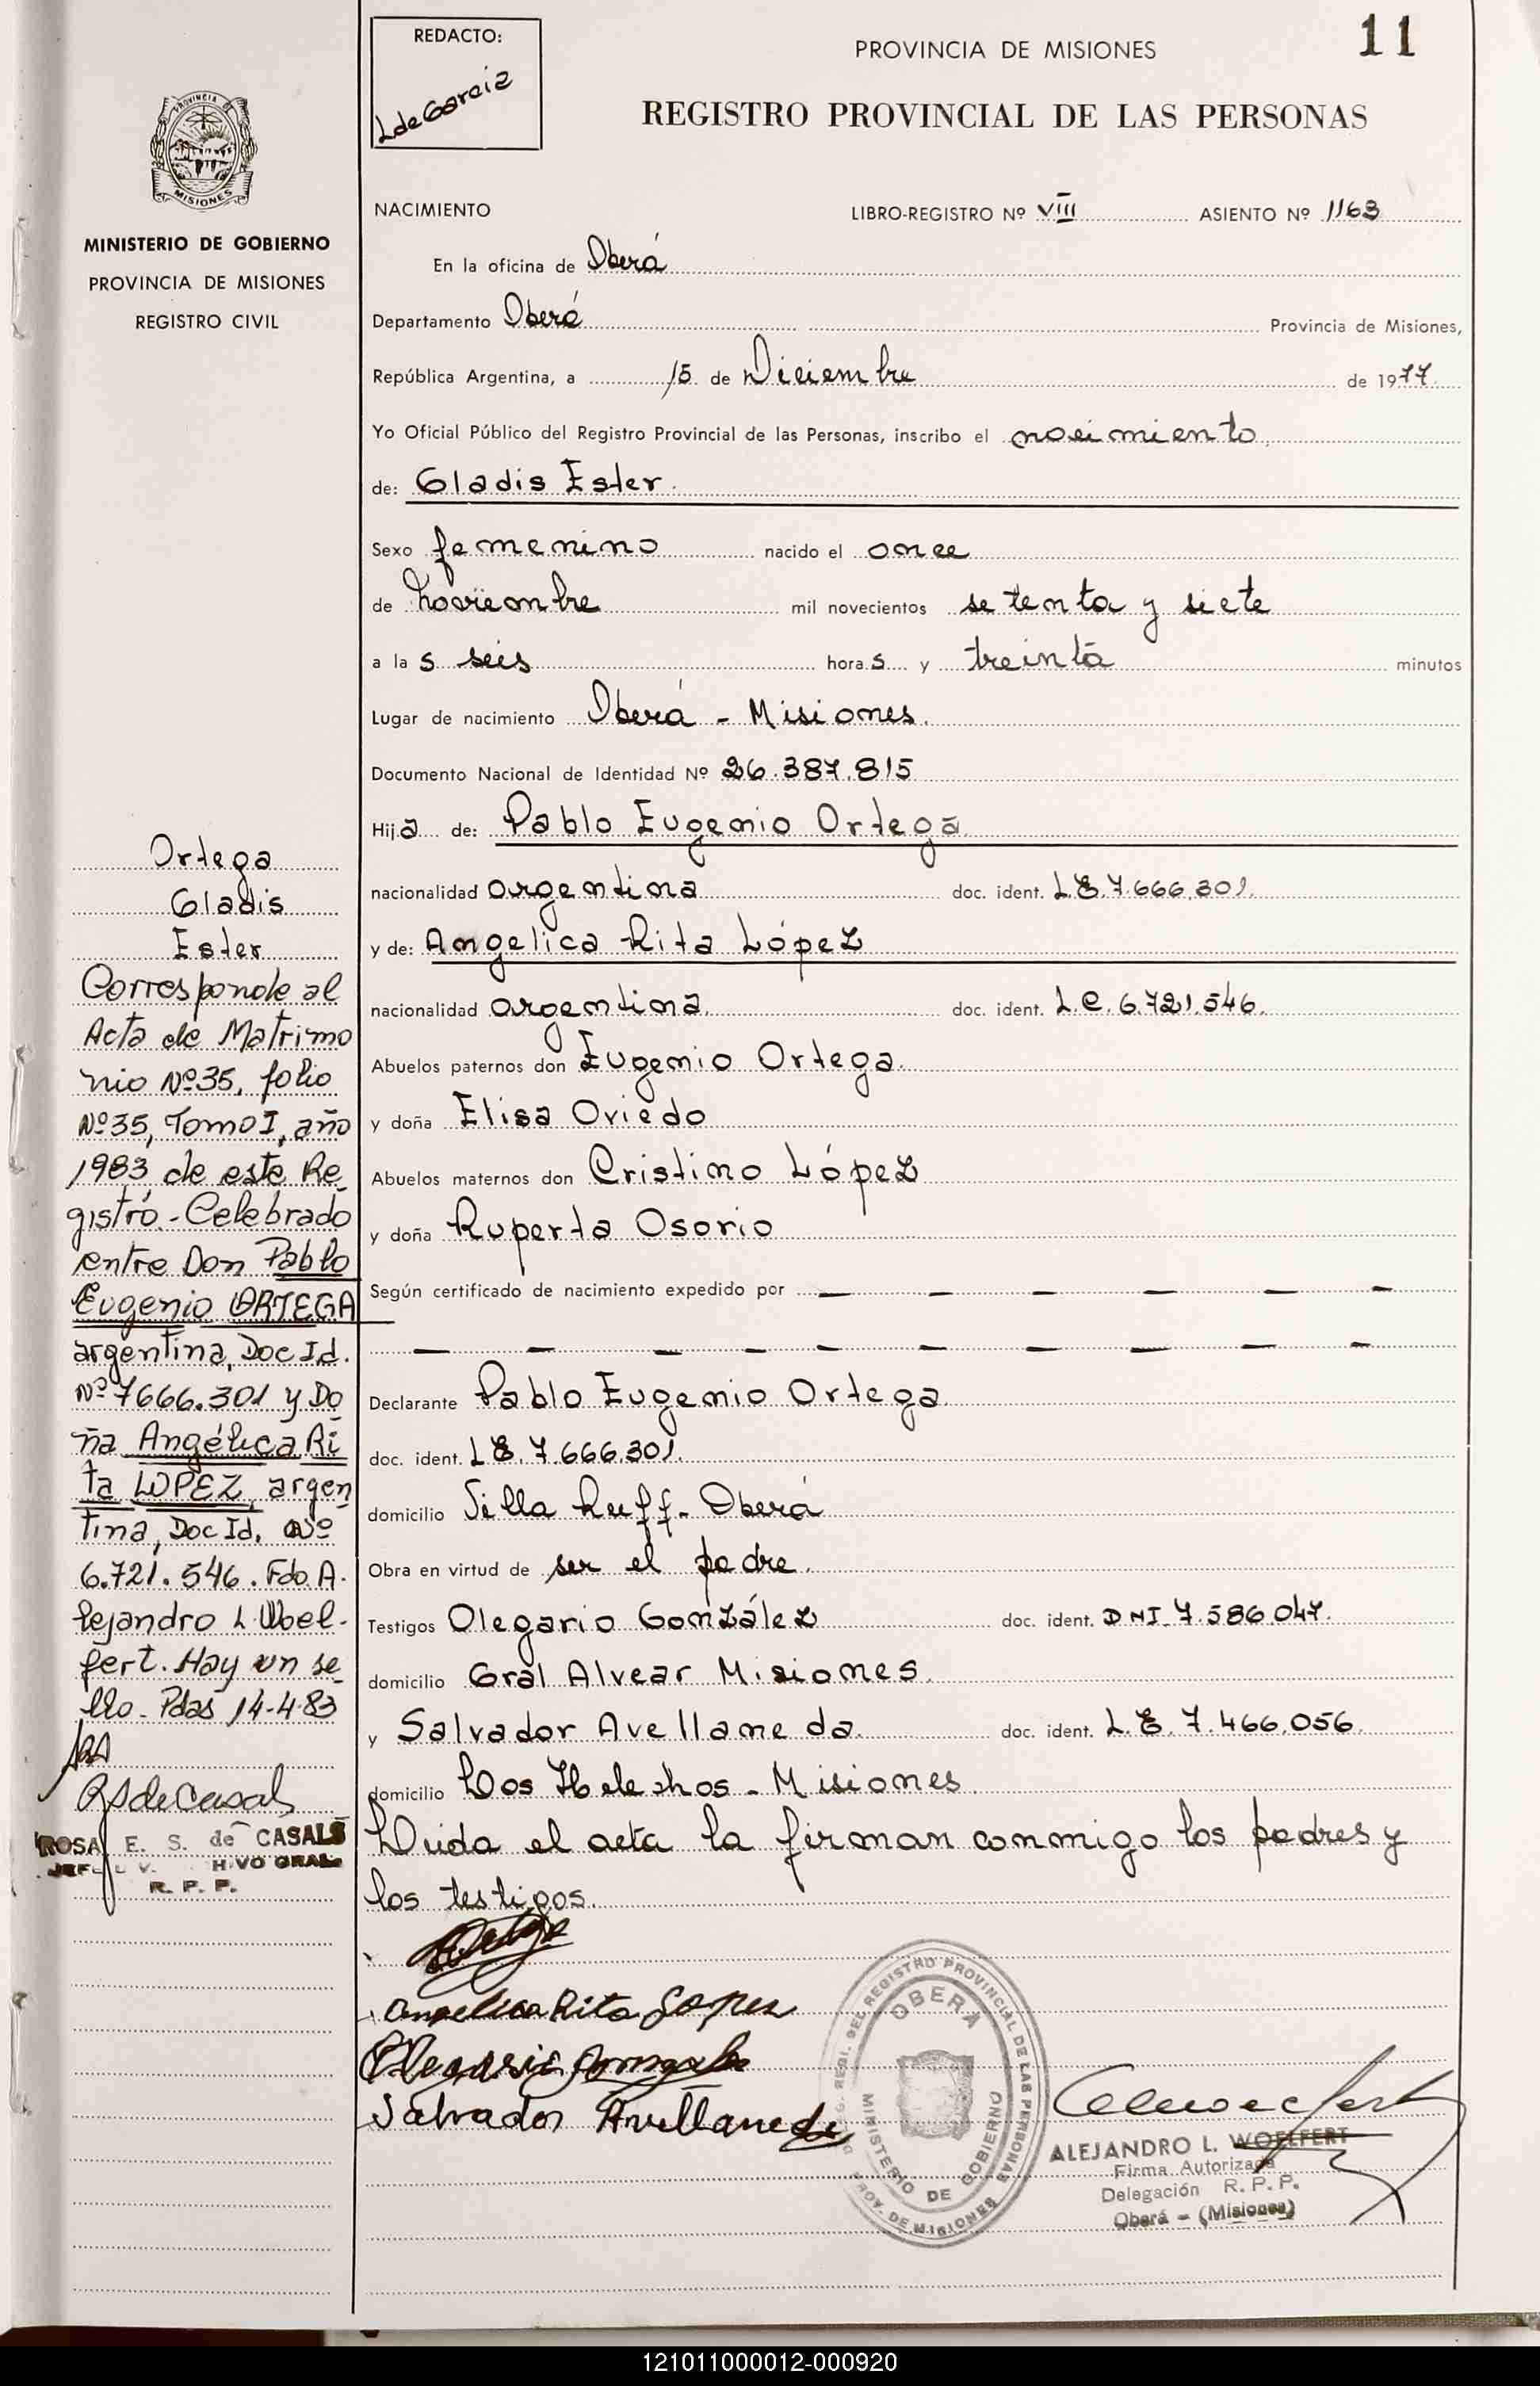 REDACTO:
LdeGarcia
PROVINCIA DE MISIONES
11
REGISTRO PROVINCIAL DE LAS PERSONAS
MISIONES
MINISTERIO DE GOBIERNO
PROVINCIA DE MISIONES
REGISTRO CIVIL
NACIMIENTO LIBRO-REGISTRO Nº VIII ASIENTO Nº 1163
En la oficina de Oberá
Departamento Oberá Provincia de Misiones,
República Argentina, a 15 de Diciembre de 1977
Yo Oficial Público del Registro Provincial de las Personas, inscribo el nacimiento
de: Gladis Ester.
Sexo femenino nacido el once
de noviembre mil novecientos setenta y siete
a la s seis hora s y treinta minutos
Lugar de nacimiento Oberá - Misiones.
Documento Nacional de Identidad Nº 26.387.815
Hija de: Pablo Eugenio Ortega
nacionalidad argentina doc. ident. L.E.7.666.301.
y de: Angelica Rita López
nacionalidad argentina. doc. ident. L.C. 6.721.546.
Abuelos paternos don Eugenio Ortega.
y doña Elisa Oviedo
Abuelos maternos don Cristino López
y doña Ruperta Osorio
Según certificado de nacimiento expedido por — — — — — —
— — — — — — — — —
Declarante Pablo Eugenio Ortega.
doc. ident. L E. 7.666.301.
domicilio Villa Ruff - Oberá
Obra en virtud de ser el padre.
Testigos Olegario González doc. ident. DNI 7.586.047.
domicilio Gral Alvear Misiones.
y Salvador Avellaneda. doc. ident. L.E. 7.466.056.
domicilio Los Helechos - Misiones
Leida el acta la firman conmigo los padres y
los testigos.
Ortega
Gladis
Ester
Corresponde al
Acta de Matrimo
nio Nº35, folio
Nº35, Tomo I, año
1983 de este Re
gistro.- Celebrado
entre Don Pablo
Eugenio ORTEGA
argentina, Doc Id.
Nº 7666.301 y Do
ña Angélica Ri
ta LOPEZ, argen
tina, Doc Id. Nº
6.721.546. Fdo. A-
lejandro L. Woel-
fert. Hay un se
llo. Pdas 14-4-83
RSdeCasals
ROSA E. S. de CASALS
R. P. P.
Ortega
Angelica Rita Lopez
Olegario Gonzalez
Salvador Avellaneda
REGISTRO PROVINCIAL DE LAS PERSONAS
OBERA
MINISTERIO DE GOBIERNO
PROV. DE MISIONES
ALEJANDRO L. WOELFERT
Firma Autorizada
Delegación R. P. P.
Oberá - (Misiones)
121011000012-000920